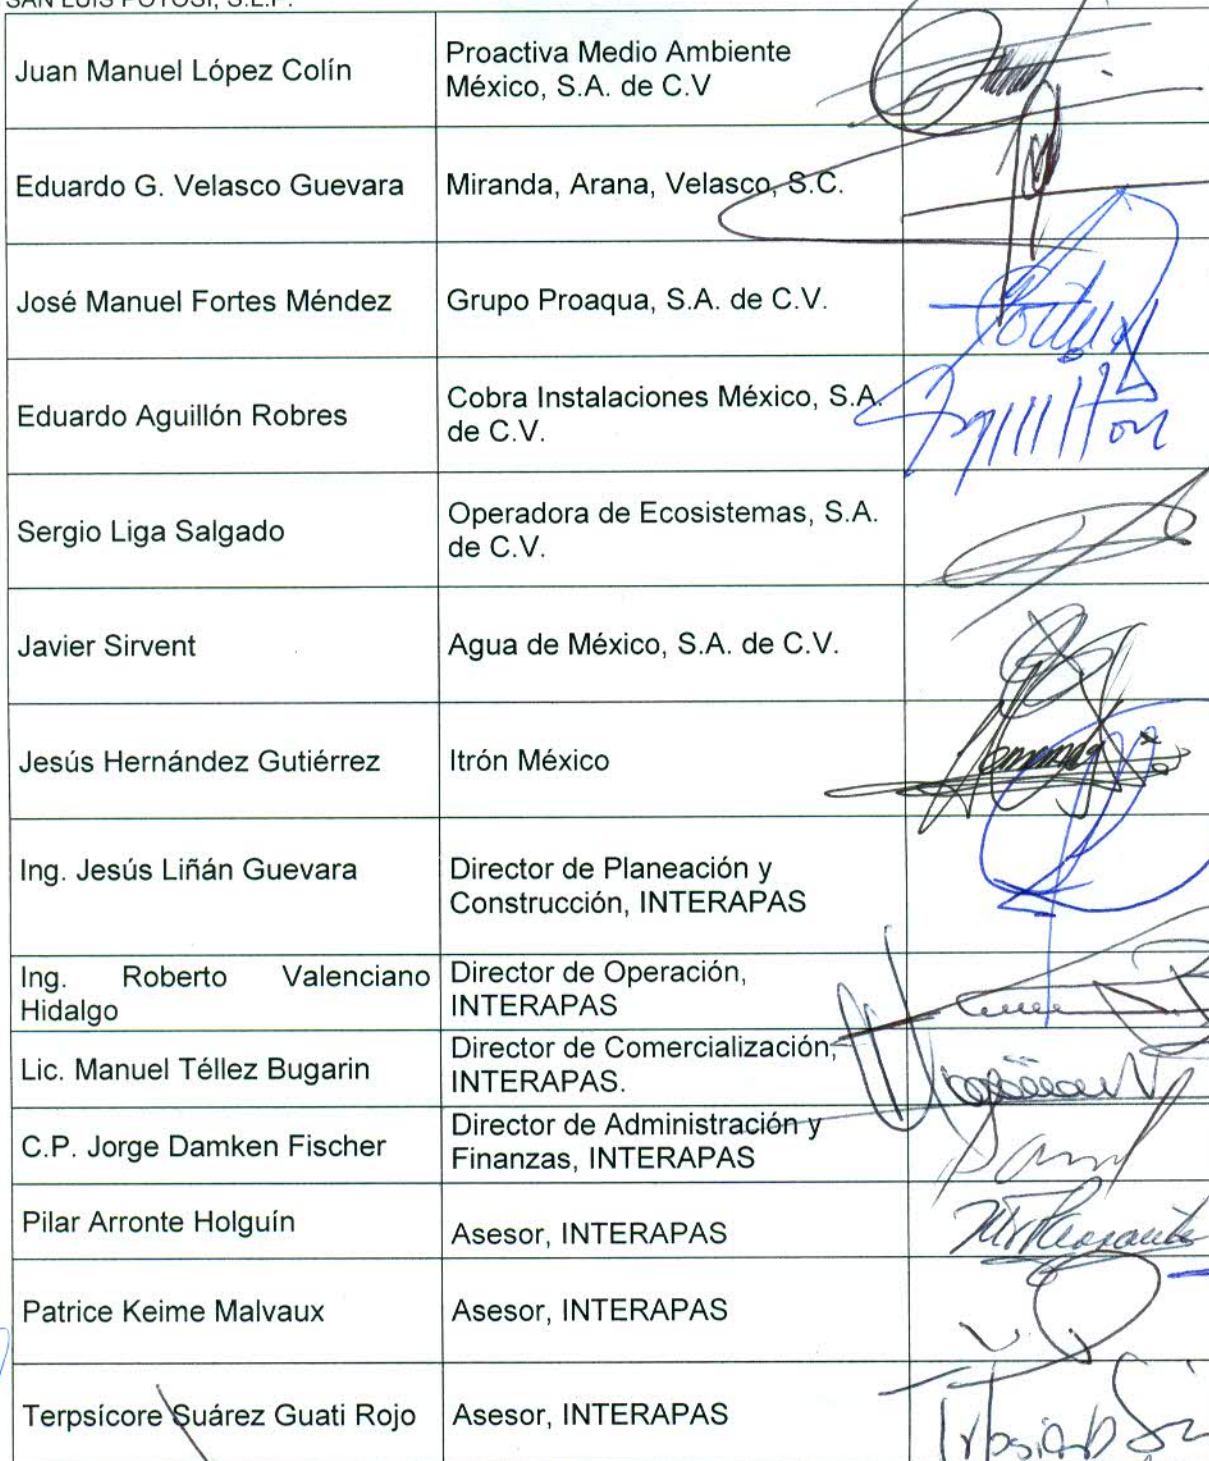 SAN LUIS POTOSÍ, S.L.P.
Juan Manuel López Colín
Proactiva Medio Ambiente
México, S.A. de C.V
Eduardo G. Velasco Guevara
Miranda, Arana, Velasco, S.C.
José Manuel Fortes Méndez
Grupo Proaqua, S.A. de C.V.
Eduardo Aguillón Robres
Cobra Instalaciones México, S.A.
de C.V.
Sergio Liga Salgado
Operadora de Ecosistemas, S.A.
de C.V.
Javier Sirvent
Agua de México, S.A. de C.V.
Jesús Hernández Gutiérrez
Itrón México
Ing. Jesús Liñán Guevara
Director de Planeación y
Construcción, INTERAPAS
Ing. Roberto Valenciano
Hidalgo
Director de Operación,
INTERAPAS
Lic. Manuel Téllez Bugarin
Director de Comercialización,
INTERAPAS.
C.P. Jorge Damken Fischer
Director de Administración y
Finanzas, INTERAPAS
Pilar Arronte Holguín
Asesor, INTERAPAS
Patrice Keime Malvaux
Asesor, INTERAPAS
Terpsícore Suárez Guati Rojo
Asesor, INTERAPAS